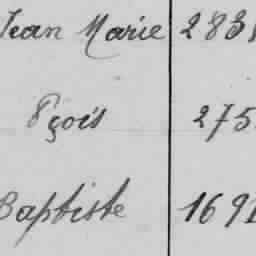 Jean Marie 283
Fçois 275
Baptiste 1691